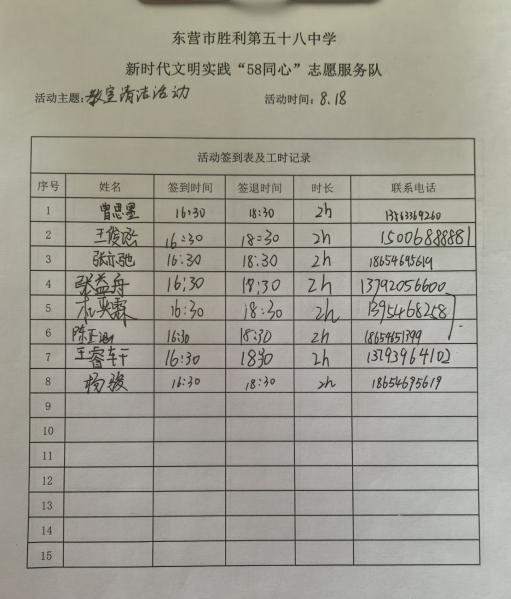 东营市胜利第五十八中学
新时代文明实践“58同心”志愿服务队
活动主题:教室清洁活动 活动时间:8.18
活动签到表及工时记录
序号 姓名 签到时间 签退时间 时长 联系电话
1 曾思墨 16:30 18:30 2h
2 王俊泓 16:30 18:30 2h 15006888881
3 张亦驰 16:30 18:30 2h 18654695619
4 张益舟 16:30 18:30 2h 13792056600
5 16:30 18:30 2h
6 16:30 18:30 2h 18654651399
7 王睿轩 16:30 1830 2h 13793964102
8 杨骏 16:30 18:30 2h 18654695619
9
10
11
12
13
14
15